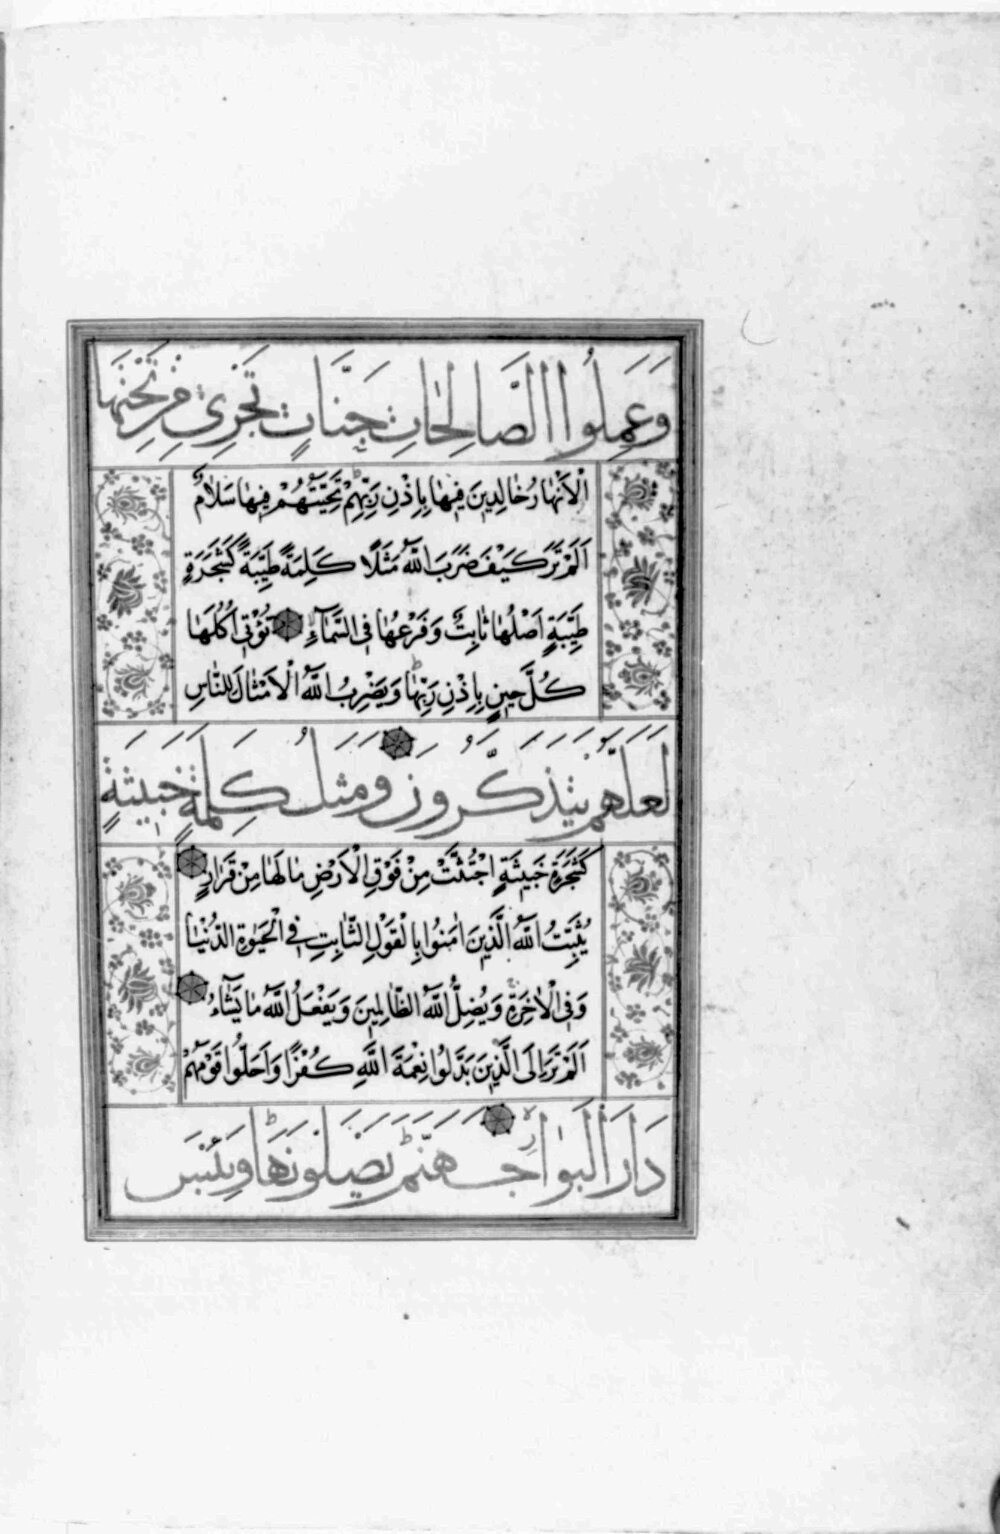 وَعَمِلُوا الصَّالِحَاتِ جَنَّاتٍ تَجْرِي مِنْ تَحْتِهَا
الْأَنْهَارُ خَالِدِينَ فِيهَا بِاِذْنِ رَبِّهِمْ تَحِيَّتُهُمْ فِيهَا سَلَامٌ
اَلَمْ تَرَ كَيْفَ ضَرَبَ اللّٰهُ مَثَلًا كَلِمَةً طَيِّبَةً كَشَجَرَةٍ
طَيِّبَةٍ اَصْلُهَا ثَابِتٌ وَفَرْعُهَا فِي السَّمَآءِ تُؤْتِي اُكُلَهَا
كُلَّ حِينٍ بِاِذْنِ رَبِّهَا وَيَضْرِبُ اللّٰهُ الْاَمْثَالَ لِلنَّاسِ
لَعَلَّهُمْ يَتَذَكَّرُونَ وَمَثَلُ كَلِمَةٍ خَبِيثَةٍ
كَشَجَرَةٍ خَبِيثَةٍ اجْتُثَّتْ مِنْ فَوْقِ الْاَرْضِ مَا لَهَا مِنْ قَرَارٍ
يُثَبِّتُ اللّٰهُ الَّذِينَ اٰمَنُوا بِالْقَوْلِ الثَّابِتِ فِي الْحَيٰوةِ الدُّنْيَا
وَفِي الْاٰخِرَةِ وَيُضِلُّ اللّٰهُ الظَّالِمِينَ وَيَفْعَلُ اللّٰهُ مَا يَشَآءُ
اَلَمْ تَرَ اِلَى الَّذِينَ بَدَّلُوا نِعْمَةَ اللّٰهِ كُفْرًا وَاَحَلُّوا قَوْمَهُمْ
دَارَ الْبَوَارِ جَهَنَّمَ يَصْلَوْنَهَا وَبِئْسَ